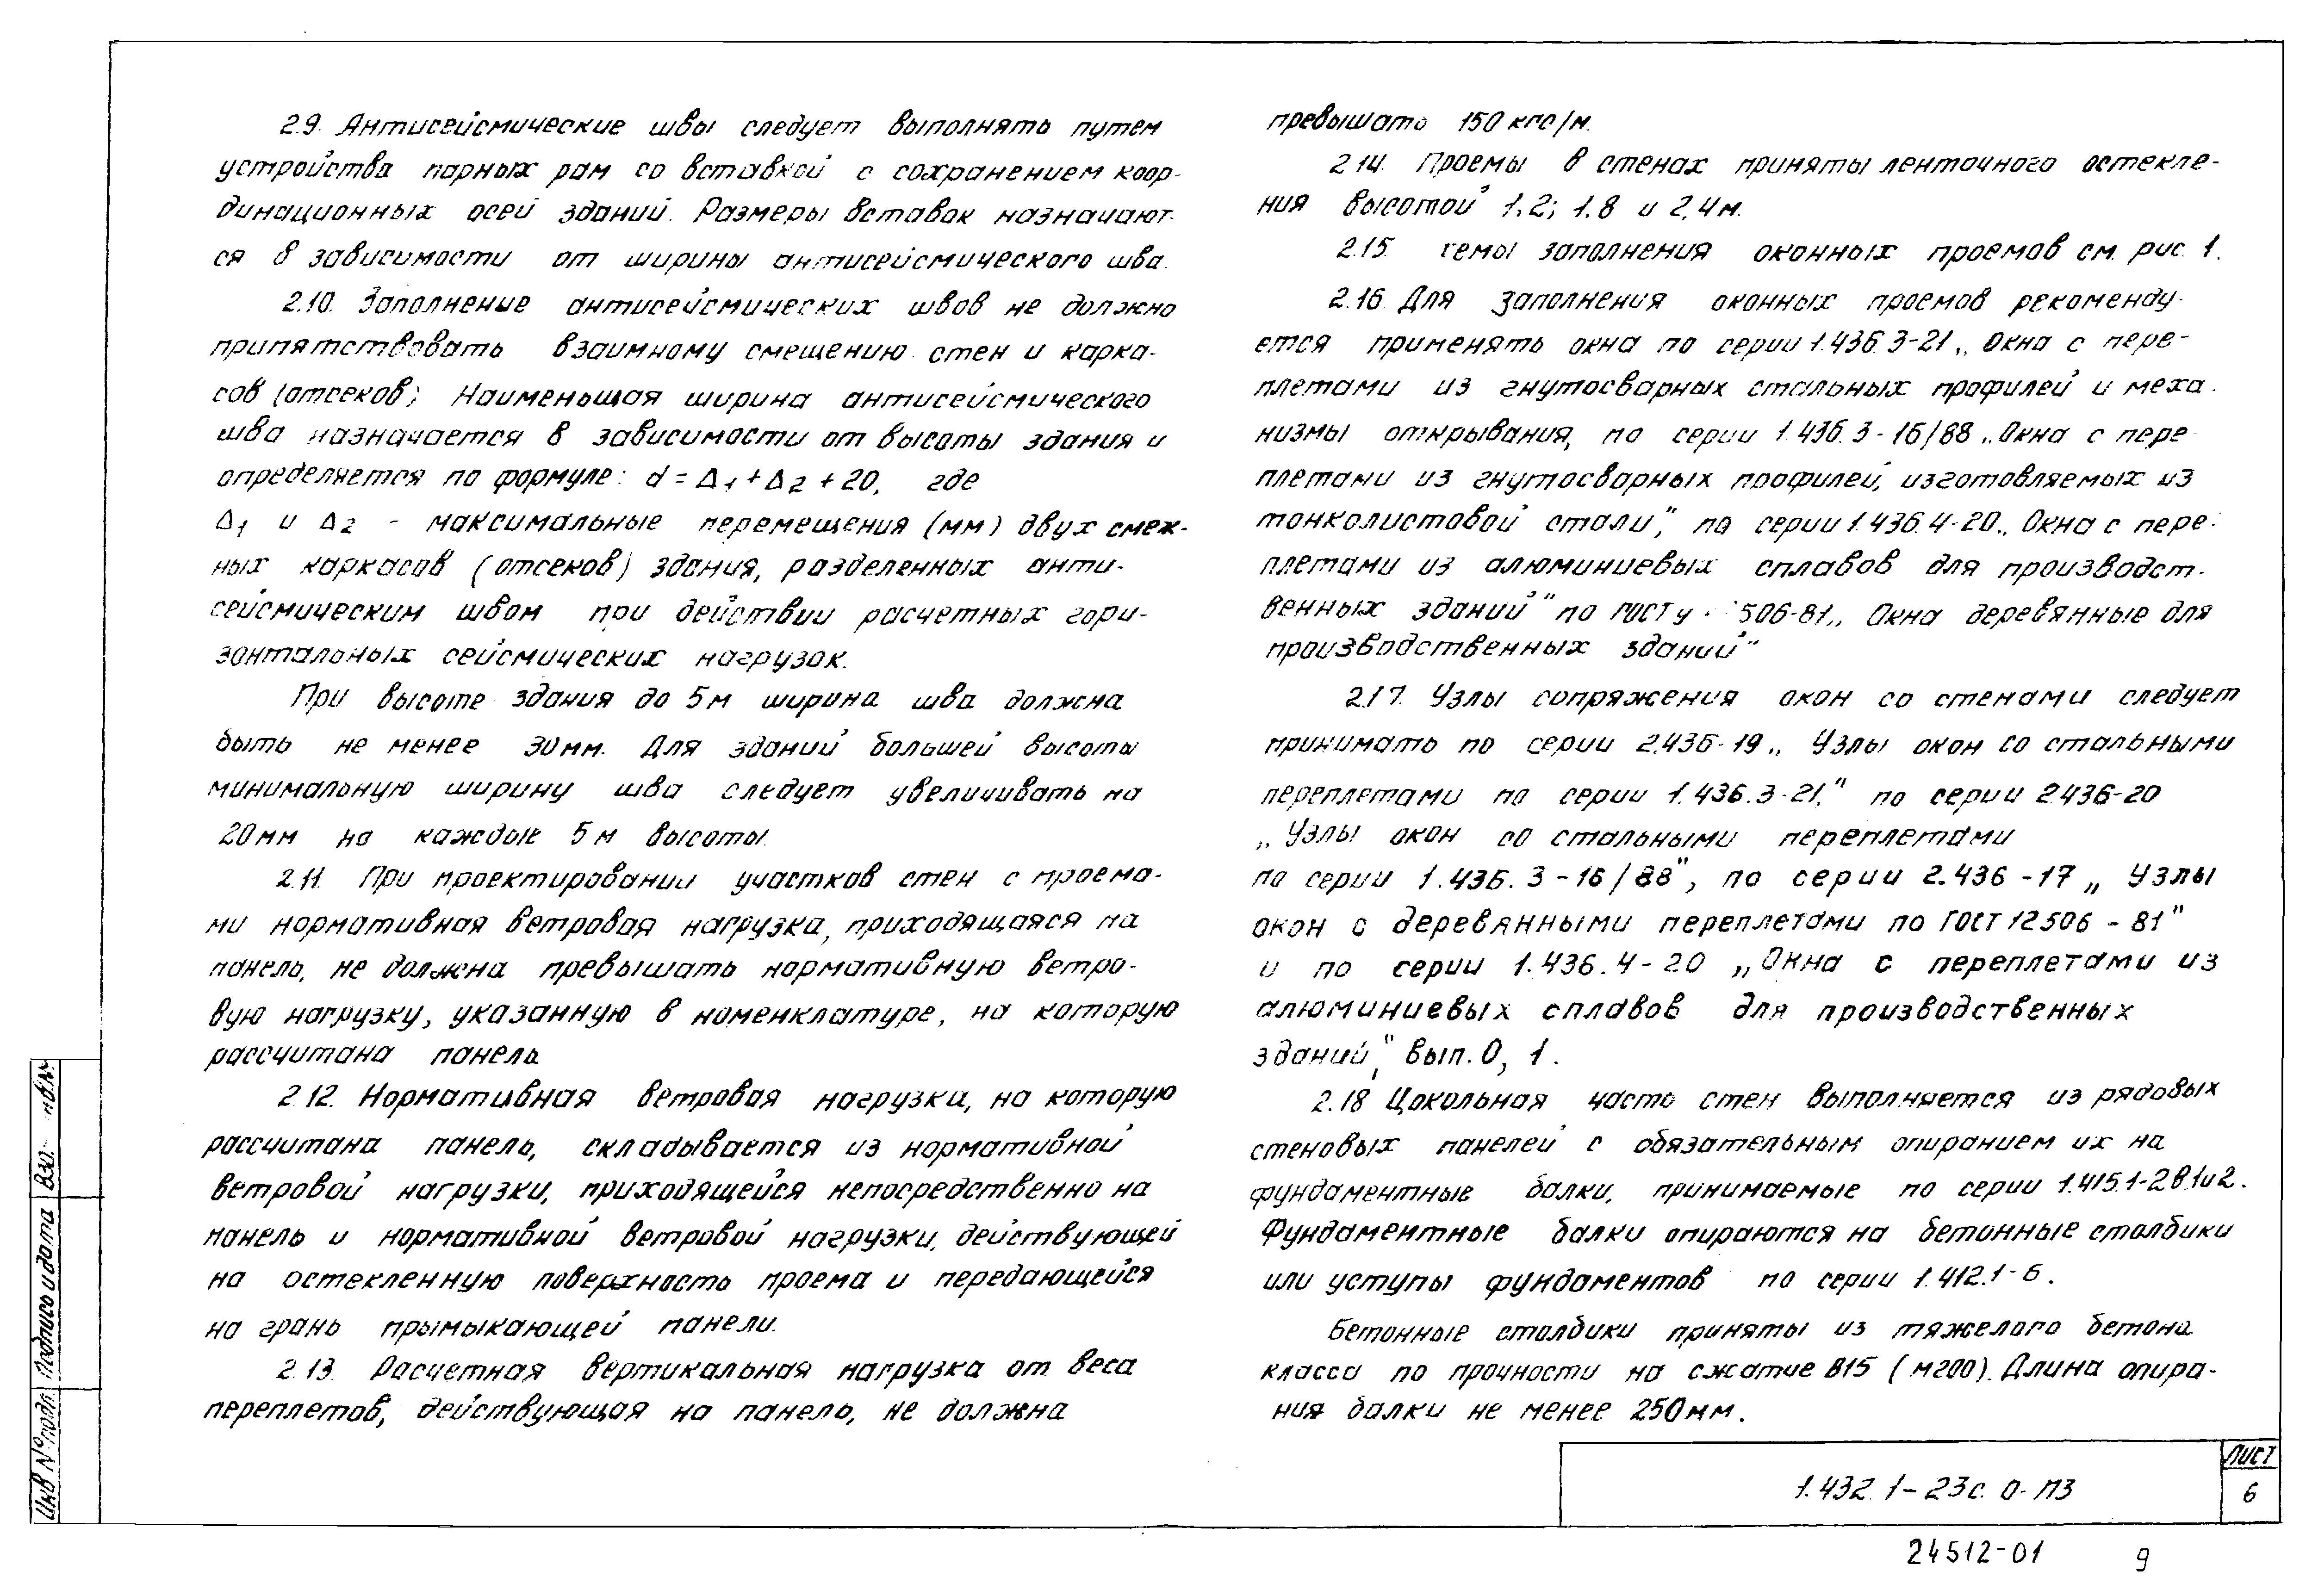 2.9. Антисейсмические швы следует выполнять путем
устройства парных рам со вставкой с сохранением коор-
динационных осей зданий. Размеры вставок назначают-
ся в зависимости от ширины антисейсмического шва.
2.10. Заполнение антисейсмических швов не должно
припятствовать взаимному смещению стен и карка-
сов (отсеков). Наименьшая ширина антисейсмического
шва назначается в зависимости от высоты здания и
определяется по формуле: d = Δ1 + Δ2 + 20, где
Δ1 и Δ2 - максимальные перемещения (мм) двух смеж-
ных каркасов (отсеков) здания, разделенных анти-
сейсмическим швом при действии расчетных гори-
зонтальных сейсмических нагрузок.
При высоте здания до 5м ширина шва должна
быть не менее 30мм. Для зданий большей высоты
минимальную ширину шва следует увеличивать на
20мм на каждые 5м высоты.
2.11. При проектировании участков стен с проема-
ми нормативная ветровая нагрузка, приходящаяся на
панель, не должна превышать нормативную ветро-
вую нагрузку, указанную в номенклатуре, на которую
рассчитана панель
2.12. Нормативная ветровая нагрузки, на которую
рассчитана панель, складывается из нормативной
ветровой нагрузки, приходящейся непосредственно на
панель и нормативной ветровой нагрузки, действующей
на остекленную поверхность проема и передающейся
на грань прымыкающей панели.
2.13. Расчетная вертикальная нагрузка от веса
переплетов, действующая на панель, не должна
превышать 150 кгс/м.
2.14. Проемы в стенах приняты ленточного остекле-
ния высотой 1,2; 1,8 и 2,4м.
2.15. темы заполнения оконных проемов см. рис. 1.
2.16. Для заполнения оконных проемов рекоменду-
ется применять окна по серии 1.436.3-21 „Окна с пере-
плетами из гнутосварных стальных профилей и меха-
низмы открывания, по серии 1.436.3-16/88 „Окна с пере-
плетами из гнутосварных профилей, изготовляемых из
тонколистовой стали", по серии 1.436.4-20 „Окна с пере-
плетами из алюминиевых сплавов для производст-
венных зданий" по ГОСТу 506-81 „Окна деревянные для
производственных зданий"
2.17. Узлы сопряжения окон со стенами следует
принимать по серии 2.436-19 „Узлы окон со стальными
переплетами по серии 1.436.3-21," по серии 2.436-20
„Узлы окон со стальными переплетами
по серии 1.436.3-16/88", по серии 2.436-17 „Узлы
окон с деревянными переплетами по ГОСТ 12506-81"
и по серии 1.436.4-20 „Окна с переплетами из
алюминиевых сплавов для производственных
зданий," вып. 0, 1.
2.18 Цокольная часть стен выполняется из рядовых
стеновых панелей с обязательным опиранием их на
фундаментные балки, принимаемые по серии 1.415.1-2 В.1и2.
Фундаментные балки опираются на бетонные столбики
или уступы фундаментов по серии 1.412.1-6.
Бетонные столбики приняты из тяжелого бетона
класса по прочности на сжатие В15 (М200). Длина опира-
ния балки не менее 250мм.
1.432.1-23с. 0-ПЗ
Лист
6
24512-01
9
Инв № подл.
Подпись и дата
Вза инв.№